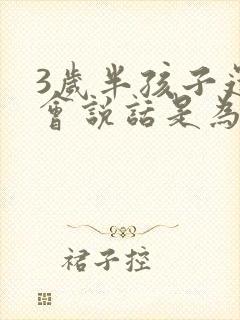 3歲半孩子
會說話是為
裙子控